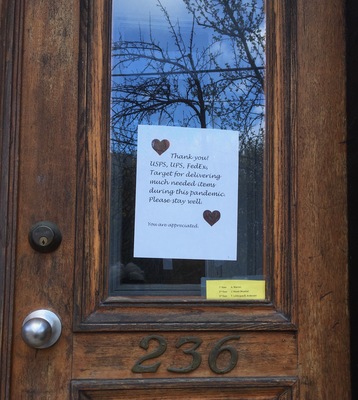 Thank you!
USPS, UPS, FedEx,
Target for delivering
much needed items
during this pandemic.
Please stay well.
You are appreciated.
236